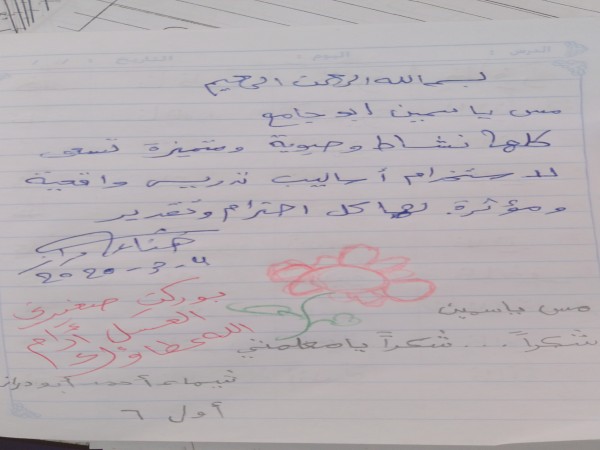 الدرس : اليوم : التاريخ : / /
بسم الله الرحمن الرحيم
مس ياسمين ابو جامع
كلها نشاط وحيوية ومتميزة تسعى
لاستخدام أساليب تدريس واقعية
ومؤثرة. لها كل احترام وتقدير
هناء
2020-3-4
بوركتِ صغيرتي
العسل أدام
الله عطاؤكِ
مس ياسمين
شكراً ... شكراً يا معلمتي
شيماء أحمد أبو دراز
أول 6